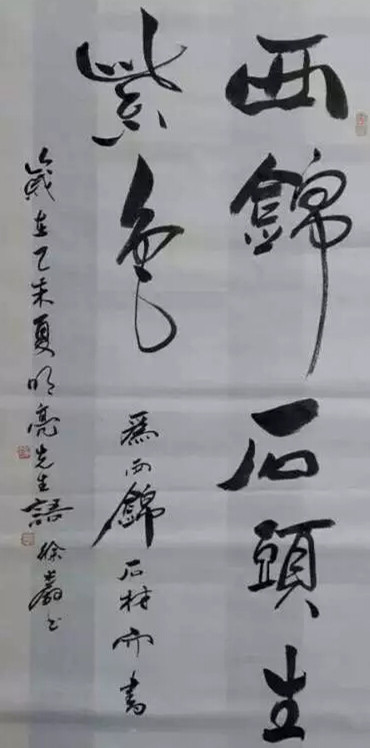 西錦石頭生
紫色
為西錦石材而書
歲在乙未夏明亮先生語徐書